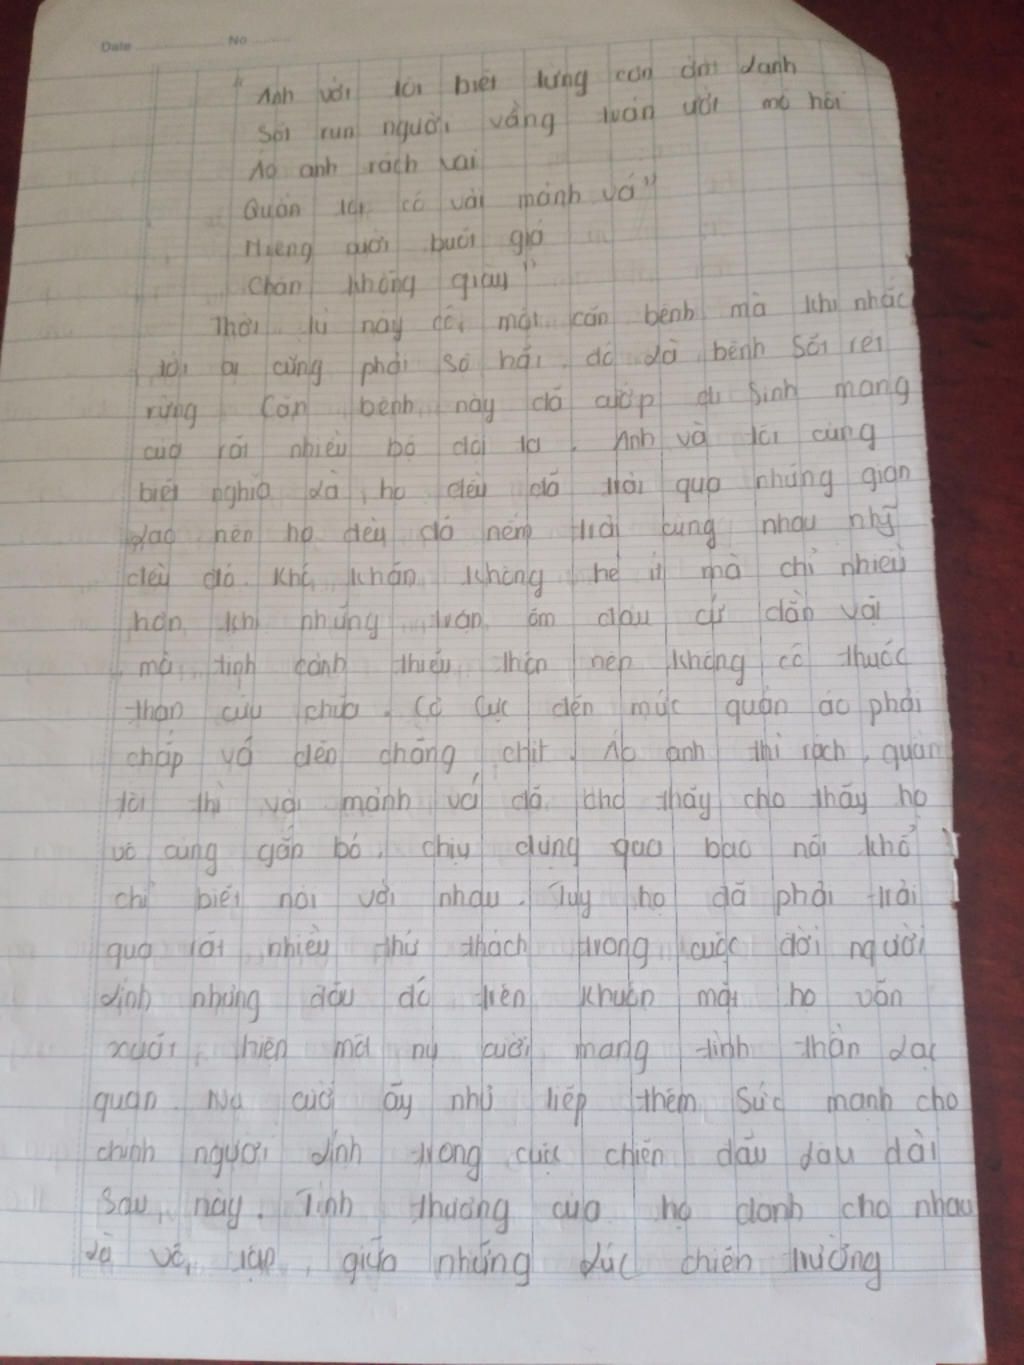 Date No
"Anh với tôi biết từng cơn ớn lạnh
Sốt run người vầng trán ướt mồ hôi
Áo anh rách vai
Quần tôi có vài mảnh vá"
Miệng cười buốt giá
Chân không giày"
Thời kì này có một căn bệnh mà khi nhắc
tới ai cũng phải sợ hãi. đó là bệnh Sốt rét
rừng Căn bệnh này đã cướp đi Sinh mạng
của rất nhiều bộ đội ta. Anh và tôi cùng
biết nghĩa là, họ đều đã trải qua những gian
lao nên họ đều đã nếm trải cùng nhau
đều đó. Khó khăn không hề ít mà chỉ nhiều
hơn khi những trận ốm đau cứ dằn vặt
mà tình cảnh thiếu thốn nên không có thuốc
than cứu chữa. Cơ cực đến mức quần áo phải
chắp vá đến chằng chịt. Áo anh thì rách, quần
tôi thì vài mảnh vá đã cho thấy cho thấy họ
vô cùng gắn bó, chịu đựng qua bao nỗi khổ
chỉ biết nói với nhau. Tuy họ đã phải trải
qua rất nhiều thử thách trong cuộc đời người
lính nhưng đâu đó trên khuôn mặt họ vẫn
xuất hiện một nụ cười mang tinh thần lạc
quan. Nụ cười ấy như tiếp thêm Sức mạnh cho
chính người lính trong cuộc chiến đấu lâu dài
Sau này. Tình thương của họ dành cho nhau
là vô tận, giữa những lúc chiến trường